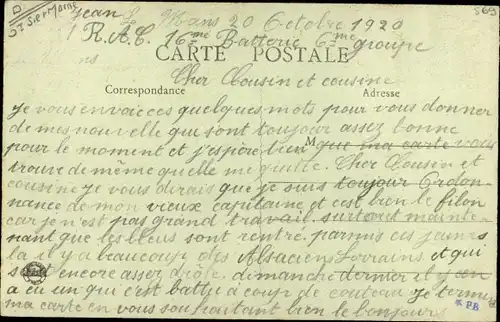 569
D
Dz Sierre Morne
Jean Le Mans 20 Octobre 1920
1 R.A.C. 16me Batterie 6me groupe
CARTE POSTALE
Cher Cousin et cousine
Correspondance
Adresse
je vous envoie ces quelques mots pour vous donner
de mes nouvelle qui sont toujour assez bonne
pour le moment et j'espère bien M que ma carte vous
trouve de même quelle me quitte. Cher Cousin et
cousine je vous dirais que je suis toujour Ordon-
nance de mon vieux capitaine et c'est bien le filon
car je n'est pas grand travail surtout mainte-
nant que les bleus sont rentré. parmis ces jeunes
la il y a beaucoup des Alsaciens Lorrains et qui
sont encore assez drôle. dimanche dernier il y en
a eu un qui c'est battu a coup de couteau je termine
ma carte en vous souhaitant bien le bonjours
* PB